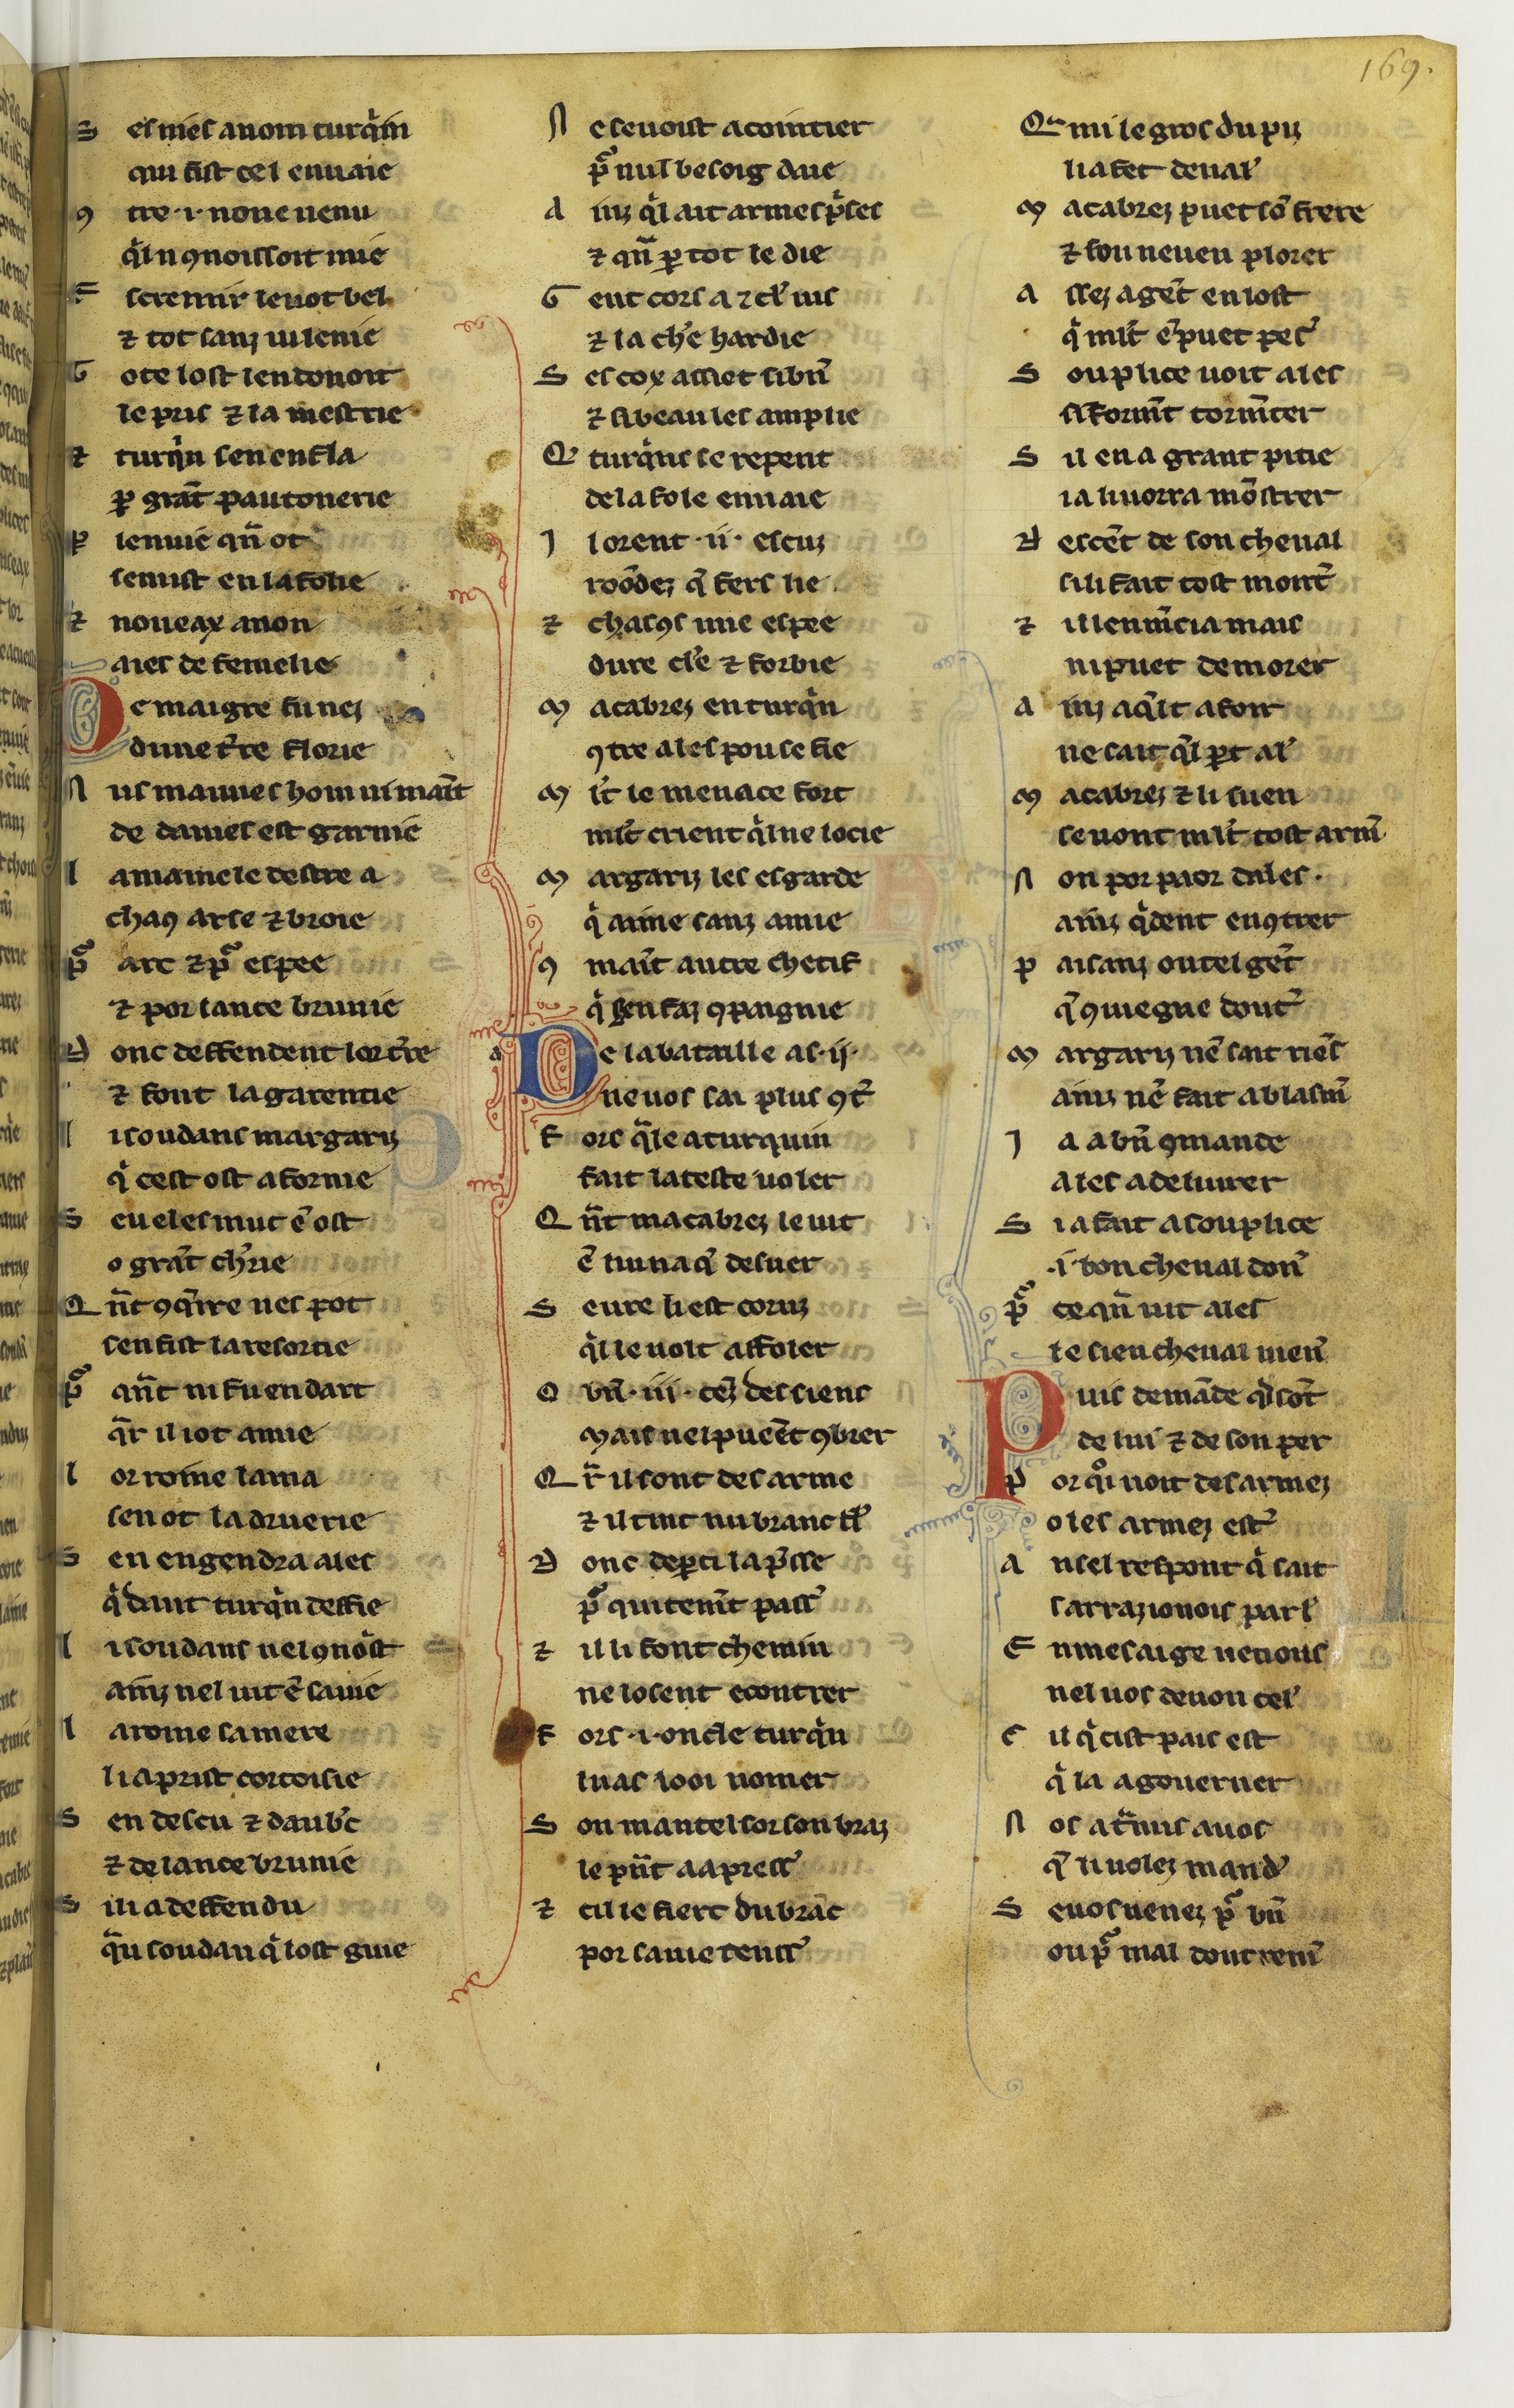 169.
S es niés a nom turq̇in
qui fist cel envaie
9tre ·i· nouel venu
q̇l n 9noissoit mie
E scremir le vot bel
⁊ tot sanz vilenie
T ote lost len donoit
le pris ⁊ la mestrie
⁊ turq̇n sen enfla
ꝑ grāt pautonerie
P lenvie qn̄ ot
se mist en la folie
⁊ noveax a non
ales de femelie
D e maigre fu nez
dune t̄re florie
N us mauves hom ni māt
de dames est garnie
l a maine le destre a
chaꝰ arse ⁊ broie
p̄ arc ⁊ p̄ espee
⁊ por lance brunie
D onc deffendent lor t̄re
⁊ font la garentie
l i soudans margariz
q̇ cest ost a fornie
S eveles mut ē ost
o grāt ch̄rie
Q n̄t 9q̄rre nes pot
sen fist la resortie
p̄ qn̄t ni fu en dart
q̄r il i ot amie
l or roine lama
sen ot la druerie
S en engendra ales
q̇ dant turq̇n deffie
l i soudans nel 9noist
ainz nel vit ē sa vie
l a roine sa mere
li aprist cortoisie
S en descu ⁊ daub̄c
⁊ de lance brunie
S i li a deffendu
q̄u soudan q̇ lost guie
N e se voist acointier
p̄ nul besoig due
A inz q̇l ait armes p̄ses
⁊ qn̄ ꝑ tot le die
G ent cors a ⁊ cl̄ vis
⁊ la ch̄e hardie
S es cox assiet si bn̄
⁊ si beau les amplie
Q turq̇ns se repent
de la fole envaie
I l orent ·ii· escuz
roōdez q̄ fers lie
⁊ chascꝰs une espee
dure cl̄e ⁊ forbie
M acabrez en turq̇n
9tre ales pou se fie
M lt̄ le menace fort
mlt̄ crient q̇l ne locie
M argariz les esgarde
q̇ aime sanz amie
9 maīt autre chetif
q̇ sen faz 9paignie
D e la bataille as ·ii·
ne vos sai plus 9t̄
F ors q̇ le a turquin
fait la teste voler
Q n̄t macabrez le vit
ē vuna q̄ desver
S eure li est coruz
q̇l le volt affoler
O bn̄ ·iii· cēz des siens
Mais nel pueēt 9brer
Q r̄ il sont desarme
⁊ il tint nu branc cl̄
D onc deꝑti la p̄sse
p̄ qui tenīt pass̄
⁊ il li font chemin
ne losent econtrer
F ors ·i· oncle turq̇n
luas looi nomer
S on mantel sor son braz
le pn̄t a apress̄
⁊ cil le fiert du brāc
por sa vie tenss̄
Q mi le gros du piz
li a fet deval̄
M acabrez puet sō frere
⁊ son neveu plorer
A ssez a gēt en lost
q̇ mlt̄ ē puet pes̄
S ouplice voit ales
si formēt tormēter
S il en a grant pitie
ia li vorra mōstrer
D escēt de son cheval
si li fait tost mont̄
⁊ il len m̄cia mais
ni puet demorer
A inz aq̄lt a foir
ne sait q̇l ꝑt al̄
M acabrez ⁊ li suen
se vont mlt̄ tost arm̄
N on por paor dales ·
ainz q̇dent en9trer
P aisanz ou tel gēt
q̄ 9viegne dout̄
M argariz nē sait riēs
ainz nē fait a blasm̄
I a a bn̄ 9mande
ales a delivrer
S i a fait a souplice
·i· bon cheval don̄
p̄ ce qn̄ vit ales
le sien cheval men̄
P uis demāde q̇ sōt
de lui ⁊ de son per
P or qͦi voit desarmez
o les armez est̄
A nsel respont q̇ sait
sarrazionois parl̄
E n mesaige venons
nel vos devon cel̄
C il q̇ cist pais est
q̇ la a governer
N os a t̄mis a vos
q̄ li volez mand̄
S e vos venez p̄ bn̄
ou p̄ mal dont ren̄